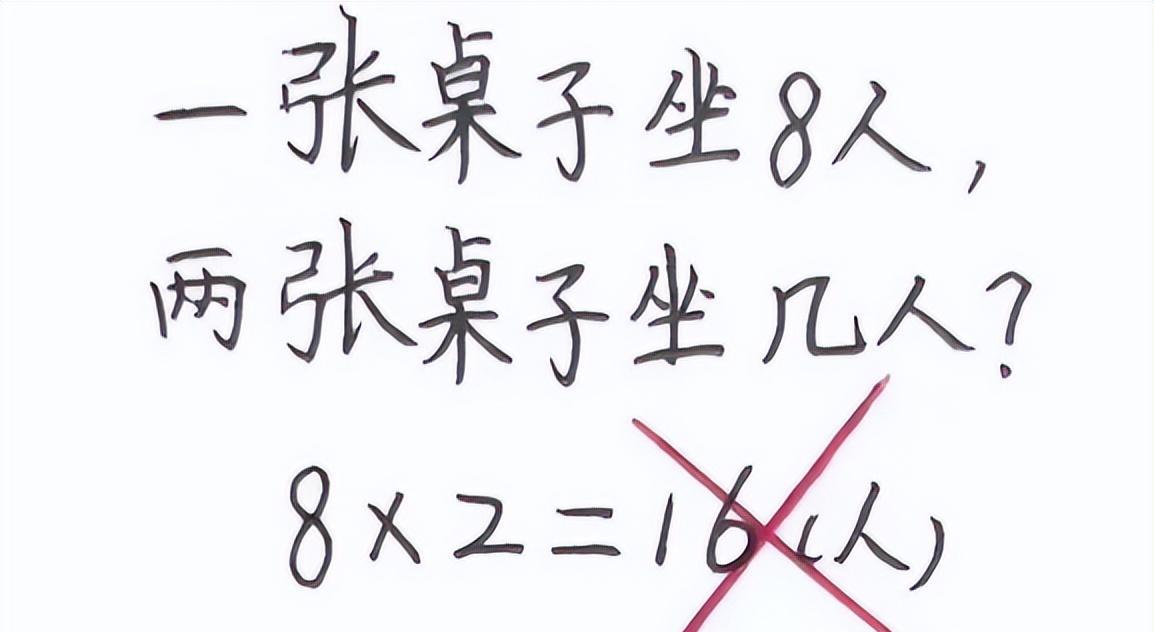 一张桌子坐8人,
两张桌子坐几人?
8×2=16(人)